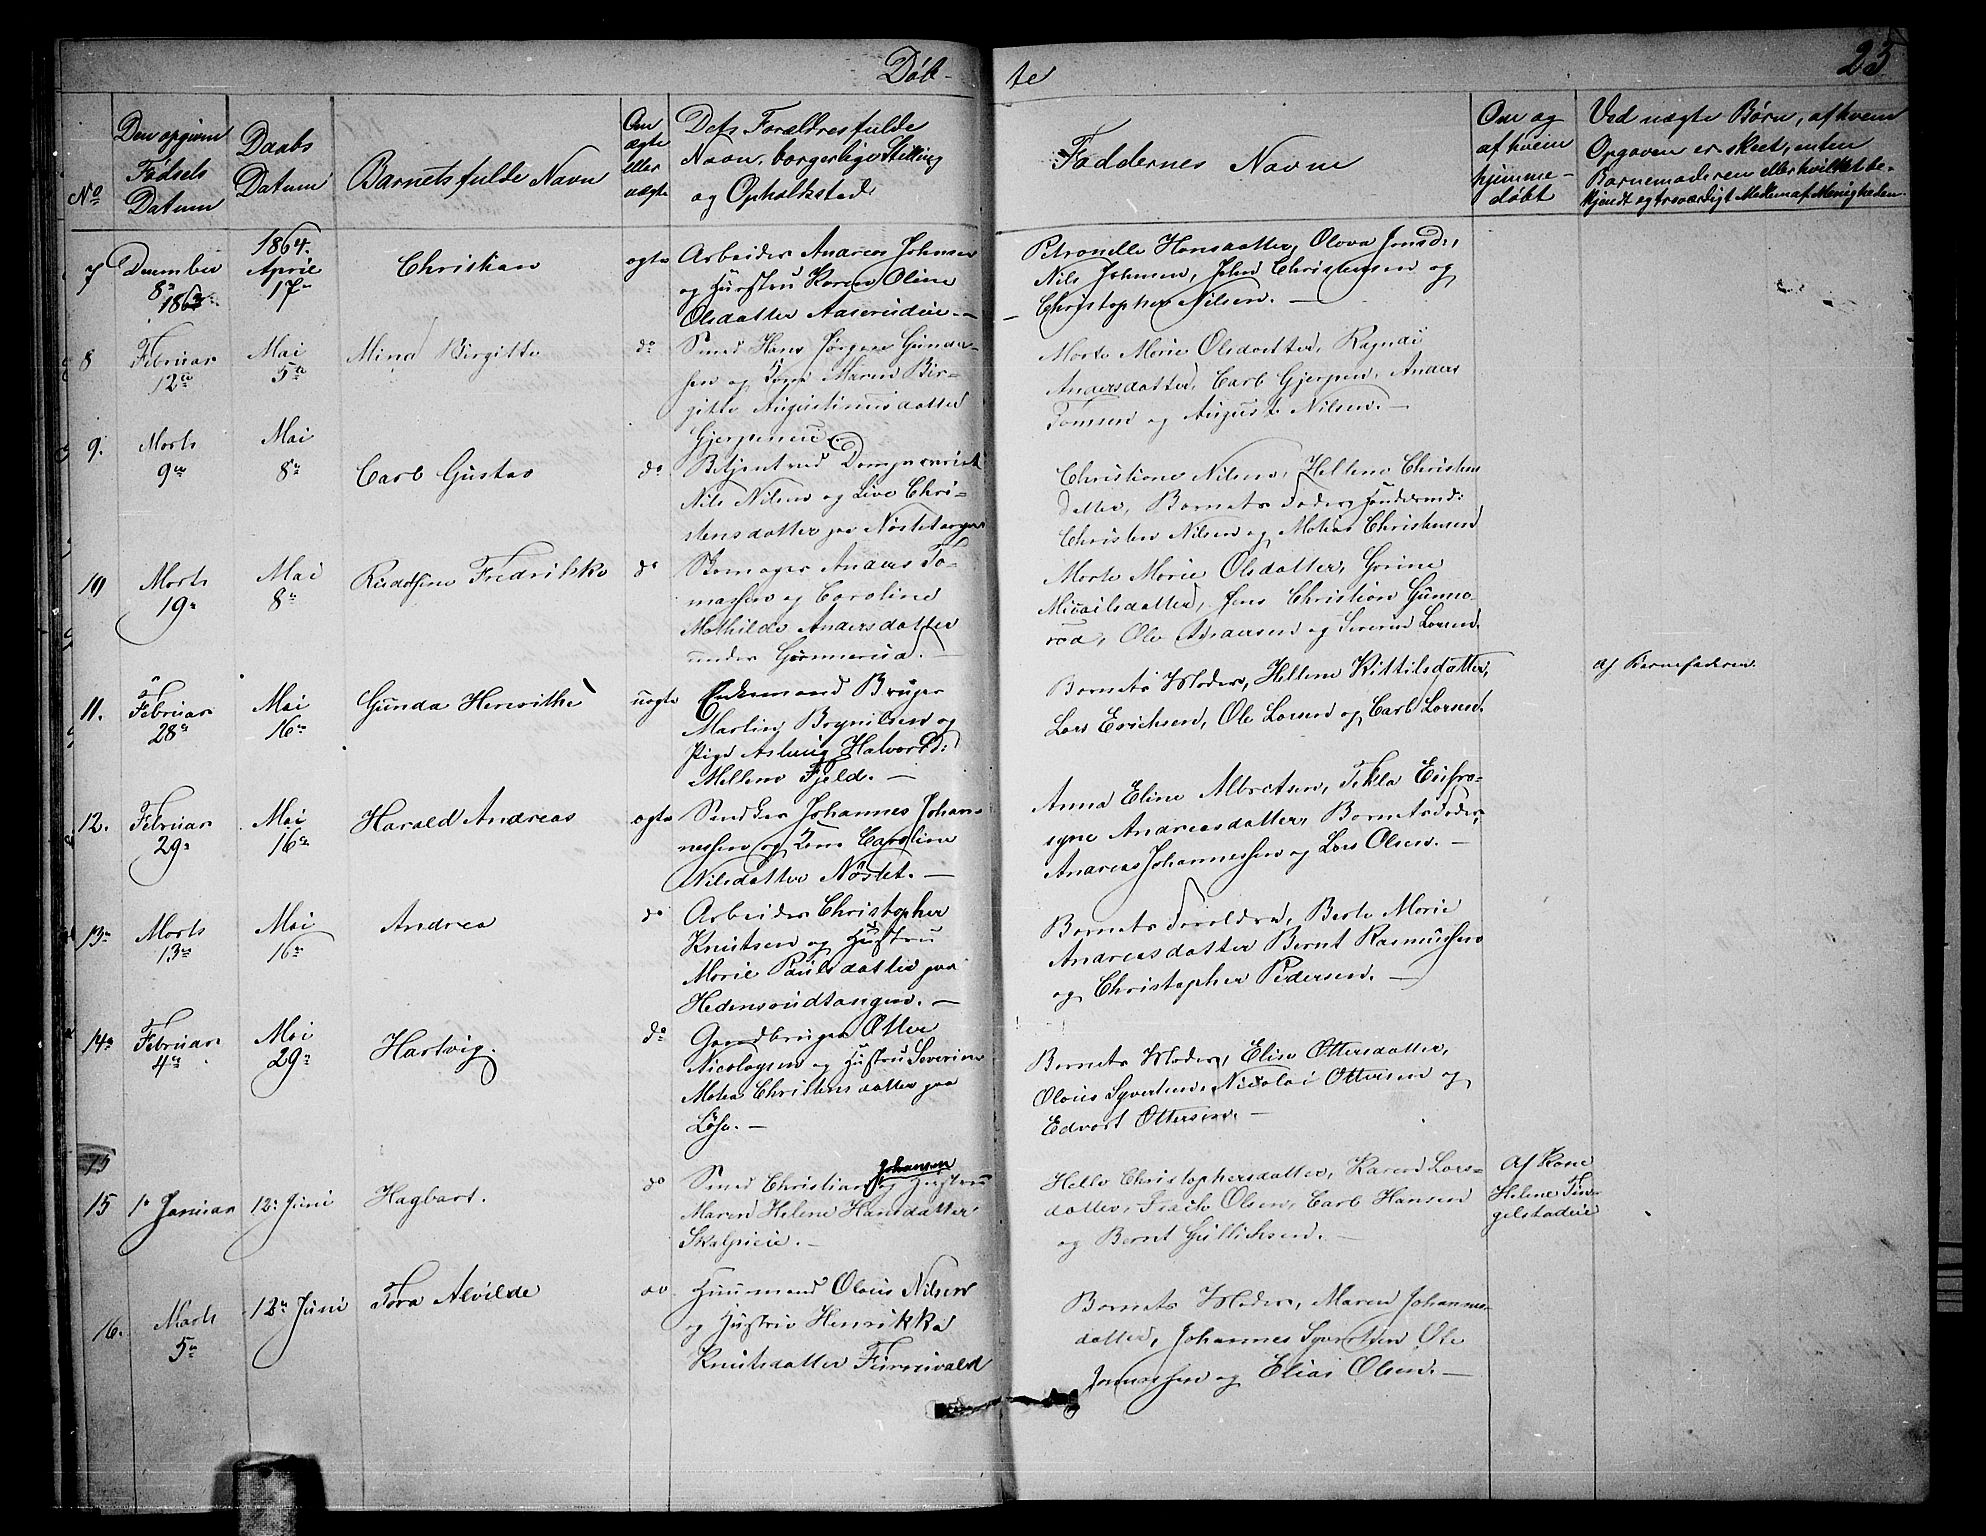 Døb-
te
25
No
Den opgivne
Fødsels
Datum
Daabs
Datum
Barnets fulde Navn
Om
ægte
eller
uægte
Dets Forældres fulde
Navn, borgerlige Stilling
og Opholdssted
Faddernes Navne
Om og
af hvem
hjemme-
døbt
Ved uægte Børn, af hvem
Opgaven er skeet, enten
Barnemoderen eller hvilket be-
kjendt og troværdigt Medlem af Menigheden
7
December
8de
1863
1864.
April
17de
Christian
ægte
Arbeider Andreas Johnsen
og Hustru Karen Oline
Olsdatter Aaserudeie. —
Petronelle Hansdatter, Olava Jonsd:,
Nils Johnsen, John Christensen og
Christopher Nilsen. —
8
Februar
12te
Mai
5te
Mina Birgitte
do
Smed Hans Jørgen Gunder-
sen og Kone Maren Bir-
gitte Augustinusdatter
Gjerpeneie.
Marte Marie Olsdatter, Ragndi
Andersdatter, Carl Gjerpen, Anders
Tomsen og August Nilsen. —
9.
Marts
9de
Mai
8de
Carl Gustav
do
Betjent ved
Nils Nilsen og Live Chri-
stensdatter paa Nøstetangen
Christiane Nilsen, Hellene Christens
datter, Barnets Fader,
Christen Nilsen og Matias Christensen
10
Marts
19de
Mai
8de
Rudolfine Fredrikke
do
Skomager Anders To-
massen og Caroline
Mathilde Andersdatter
under Gunnerud.
Marte Marie Olsdatter, Gorine
Micailsdatter, Jens Christian Gunne-
rud, Ole Andersen og Severin Larsen.
11.
Februar
28de
Mai
16de
Gunda Henrithe
uægte
Enkemand Bruger
Martin Brynilsen og
Pige Aslaug Halvorsd:
Mellem Fjeld. —
Barnets Moder, Hellene Kittilsdatter,
Lars Erichsen, Ole Larsen og Carl Larsen.
af Barnefaderen.
12.
Februar
29de
Mai
16de
Harald Andreas
ægte
Snedker Johannes Johan-
nessen og Kone Caroline
Nilsdatter Nøstet. —
Anna Eline Albretsen, Tekla Eufro-
syne Andreasdatter, Barnets Fader,
Andreas Johannessen og Lars Olsen. —
13de
Marts
13de
Mai
16de
Andrea
do
Arbeider Christopher
Knutsen og Hustru
Marie Paulsdatter paa
Hedensrudtangen. —
Barnets Forældre, Berte Marie
Andreasdatter Bernt Rasmussen
og Christopher Pedersen. —
14de
Februar
4de
Mai
29de
Hartvig.
do
Gaardbruger Otter
Nicolaysen og Hustru Severine
Matea Christensdatter paa
Løse. —
Barnets Moder, Elise Ottersdatter,
Olaus Syvertsen, Nicolai Ottersen og
Edvart Ottersen. —
15
15
1de Januar
12te Juni
Hagbart.
do
Johansen
Smed Christian og Hustru
Maren Helene Hansdatter
Skalpeeie. —
Helle Christophersdatter, Karen Lars-
datter, Fredrik Olsen, Carl Hansen
og Bernt Gullichsen. —
Af Kone
Helene Tin-
gelstadeie
16.
Marts
5te
12te Juni
Tora Alvilde
do
Huusmand Olaus Nilsen
og Hustru Henrikka
Knutsdatter
Barnets Moder, Maren Johannes-
datter, Johannes Syvertsen Ole
Jonassen og Elias Olsen. —